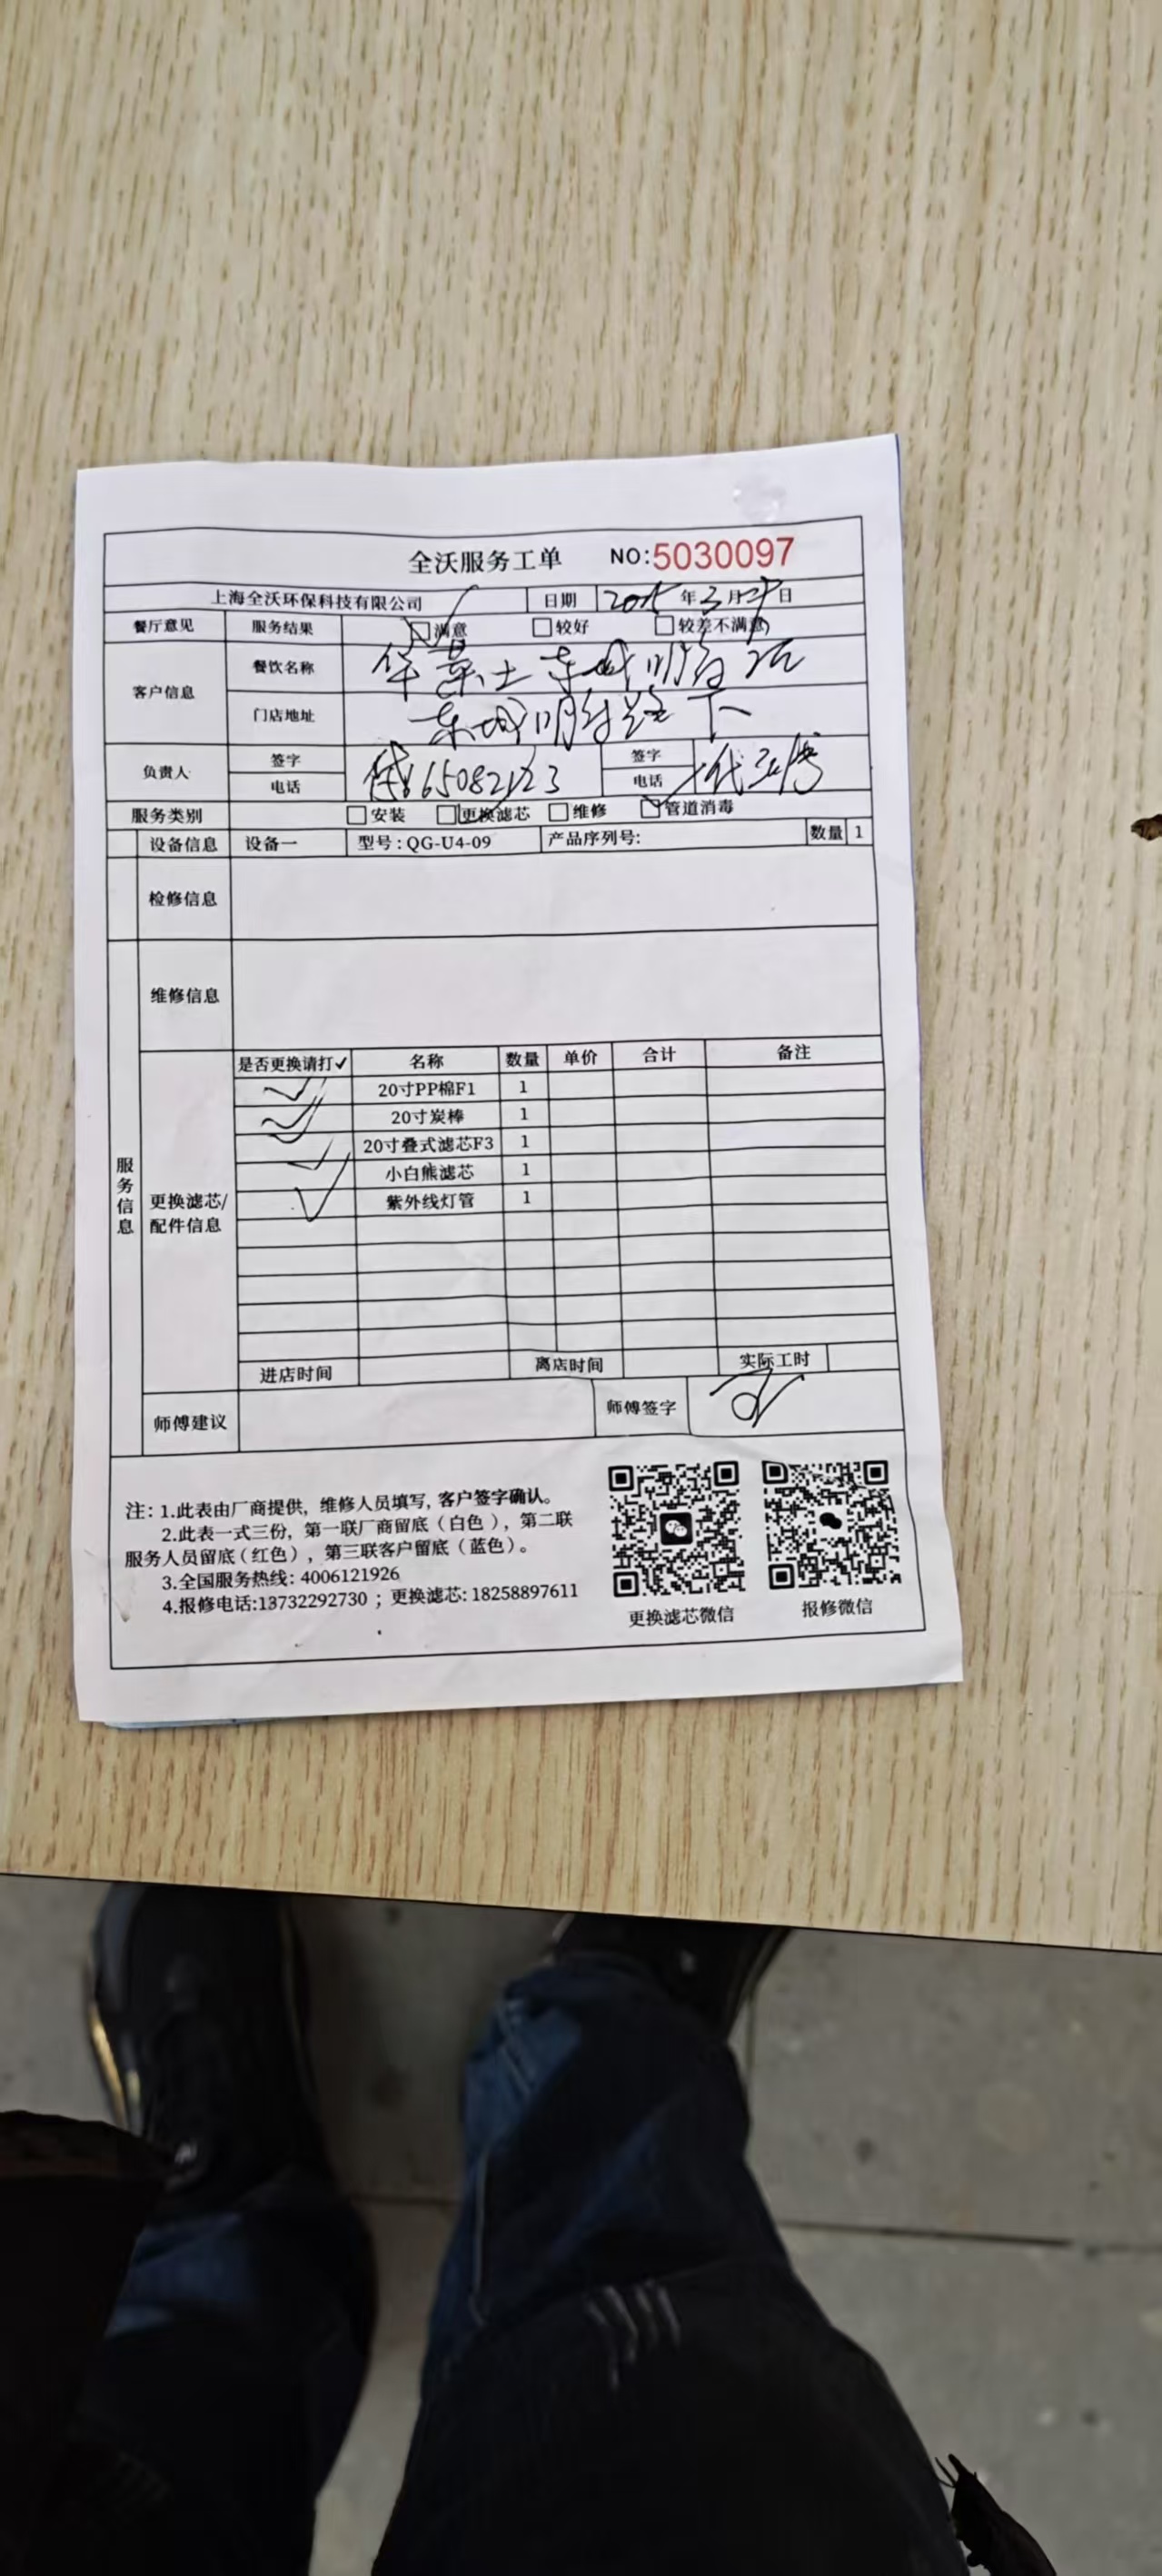 全沃服务工单 NO:5030097
上海全沃环保科技有限公司 日期 年3月 日
餐厅意见 服务结果 满意 较好 较差不满意)
客户信息 餐饮名称 华莱士东城明 店
门店地址 东城明 路
负责人 签字 签字
电话 电话
服务类别 安装 更换滤芯 维修 管道消毒
设备信息 设备一 型号:QG-U4-09 产品序列号: 数量 1
检修信息
维修信息
服务信息
更换滤芯/
配件信息
是否更换请打✓ 名称 数量 单价 合计 备注
✓ 20寸PP棉F1 1
✓ 20寸炭棒 1
✓ 20寸叠式滤芯F3 1
✓ 小白熊滤芯 1
✓ 紫外线灯管 1
进店时间 离店时间 实际工时
师傅建议 师傅签字
注: 1.此表由厂商提供, 维修人员填写, 客户签字确认。
2.此表一式三份, 第一联厂商留底(白色), 第二联
服务人员留底(红色), 第三联客户留底(蓝色)。
3.全国服务热线: 4006121926
4.报修电话:13732292730 ; 更换滤芯: 18258897611
更换滤芯微信 报修微信